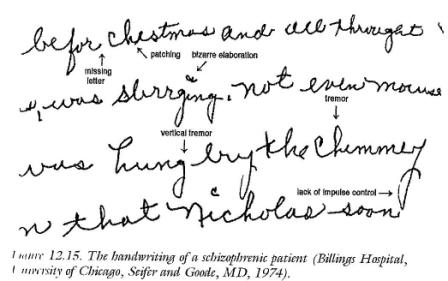 befor chestmas and all throught
missing letter
patching
bizarre elaboration
was slirrging. not even mouse
tremor
vertical tremor
was hung by the Chimmey
lack of impulse control
n that Nicholas soon
Figure 12.15. The handwriting of a schizophrenic patient (Billings Hospital,
University of Chicago, Seifer and Goode, MD, 1974).